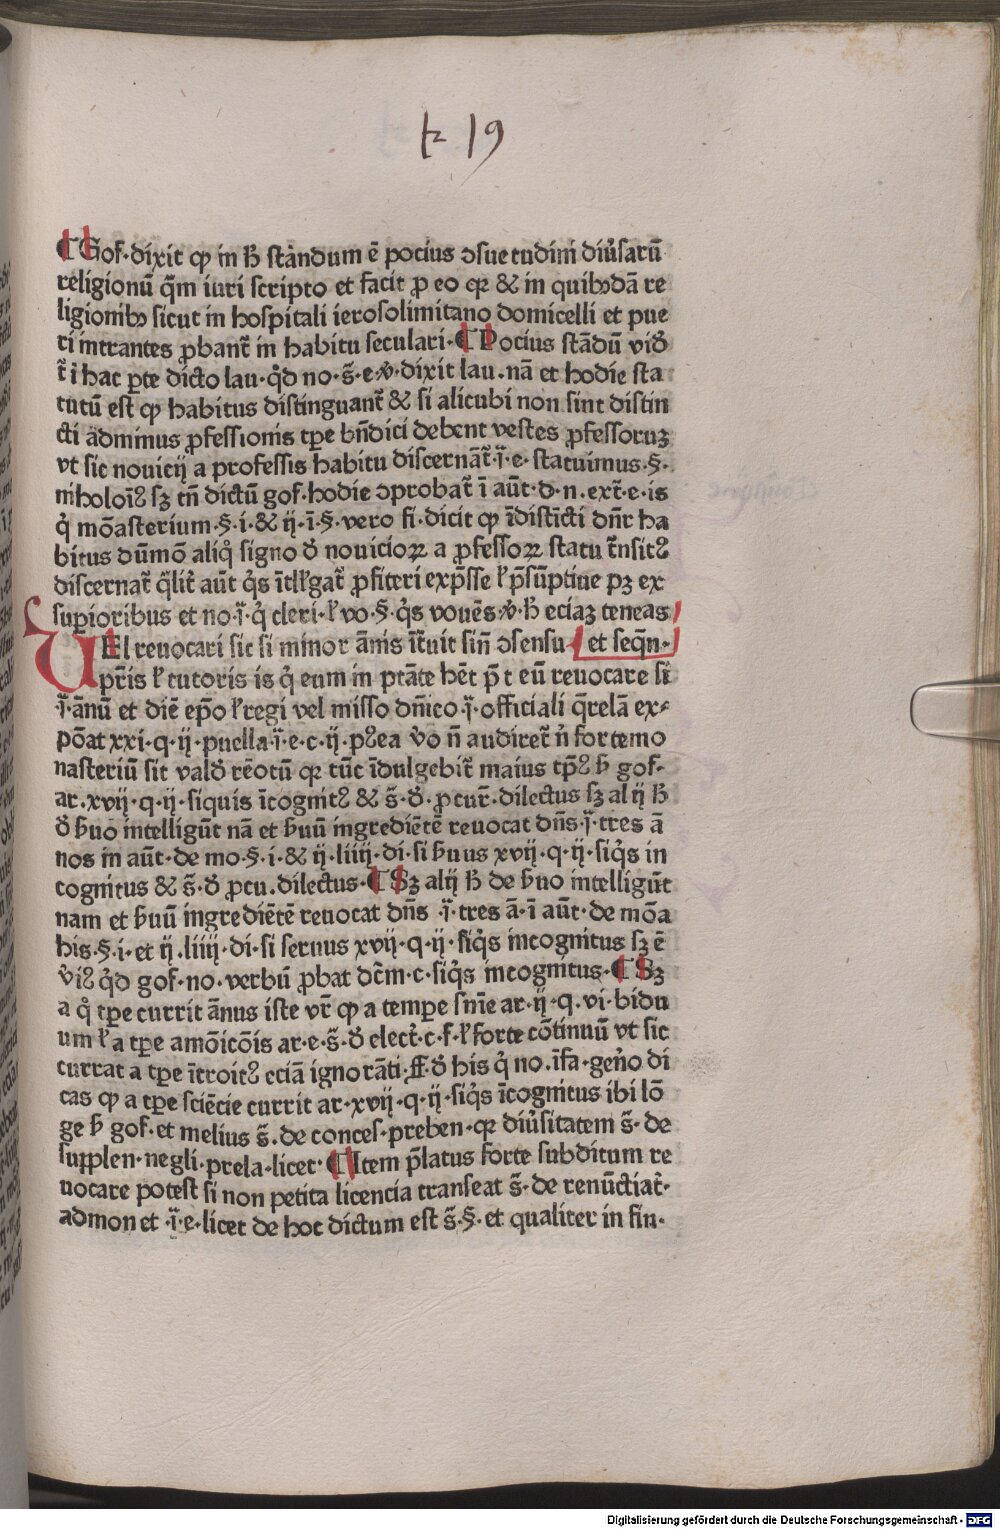 k 19
¶ Gof·dixit ꝙ in h̄ standum ē pocius ↄsuetudini diu̾sarū
religionū q̄m iuri scripto et facit ꝓ eo qꝛ & in quibꝰdā re
ligionibꝰ sicut in hospitali ierosolimitano domicelli et pue
ri intrantes ꝓbant̄ in habitu seculari·¶ Pocius stādū vid̾
t̄ i hac ꝑte dicto lau·qd̾ no·s̄·e·v̾·dixit lau·nā et hodie sta
tutū est ꝙ habitus distinguant̄ & si alicubi non sint distin
cti adminus ꝓfessionis tꝑe bn̄dici debent vestes ꝓfessoruꝫ
vt sic nouicij a professis habitu discernāt̄·i̾·e·statuimus·§·
in holoī sꝫ tn̄ dictū gof·hodie ↄprobat̄ ī aūt·d·n·ext̄·e·is
q̾ mōasterium·§·i·& ij·ī·§·vero fi·dicit ꝙ īdistīcti dn̄r ha
bitus dūmō aliq̾ signo d̾ nouicioꝝ a ꝓfessoꝝ statu t̄nsitꝰ
discernat̄ q̄lit̄ aūt q̾s ītll̾gat̄ ꝓfiteri exp̄sse l̾ p̄sūptiue pꝫ ex
suꝑioribus et no·i̾·q̾ cleri·l̾ vo·§·q̾s vouēs·v̾·h̄ eciaꝫ teneas
UEl reuocari sic si minor ānis īt̄uit sin̄ ↄsensu et seq̄n·
pr̄is l̾ tutoris is q̾ eum in ptāte hēt p̄t eū reuocare si
i̾·ānū et diē epō l̾ regi vel misso dn̄ico·i̾·officiali q̄relā ex⸗
pōat xxi·q·ij·puella·i̾·e·c·ij·pꝰea v̾o n̄ audiret̄ n̄ forte mo
nasteriū sit vald̾ rēotū qꝛ tūc īdulgebit̄ maius tp̄ꝰ h̄ gof·
ar·xvij·q·ij·siquis īcognitꝰ & s̄·d̾·ꝓcur̄·dilectus sꝫ alij h̄
d̾ ẜuo intelligūt nā et ẜuū ingrediētē reuocat dn̄s·i̾·tres ā
nos in aūt·de mo·§·i·& ij·liiij·di·si ẜuus xvij·q·ij·siq̾s in
cognitus & s̄·d̾ ꝓcu·dilectus·¶ Sꝫ alij h̄ de ẜuo intelligūt
nam et ẜuū ingrediētē reuocat dn̄s ·i̾·tres ā·ī aūt·de mōa
his·§·i·et ij·liiij·di·si seruus xvij·q·ij·siq̾s incognitus sꝫ ē
v̾iꝰ qd̾ gof·no·verbū ꝓbat dc̄m·c·siq̾s incognitus·¶ Sꝫ
a q̾ tꝑe currit ānus iste vr̄ ꝙ a tempe sn̄ie ar·ij·q·vi·bidu
um l̾ a tꝑe amōicōis ar·e·s̄·d̾ elect̄·c·f·l̾ forte cōtinuū vt sic
currat a tꝑe ītroitꝰ eciā ignorāti·ff·d̾ his q̾ no·īfa·gen̄o di
cas ꝙ a tꝑe sciēcie currit ar·xvij·q·ij·siq̾s īcognitus ibi lō
ge h̄ gof·et melius s̄·de conces·preben·qꝛ diu̾sitatem s̄·de
supplen·negli·prela·licet·¶ Item p̄latus forte subditum re
uocare potest si non petita licencia transeat s̄·de renūctiat̄·
admon et ·i̾·e·licet de hoc dictum est s̄·§·et qualiter in fin·
Digitalisierung gefördert durch die Deutsche Forschungsgemeinschaft - DFG